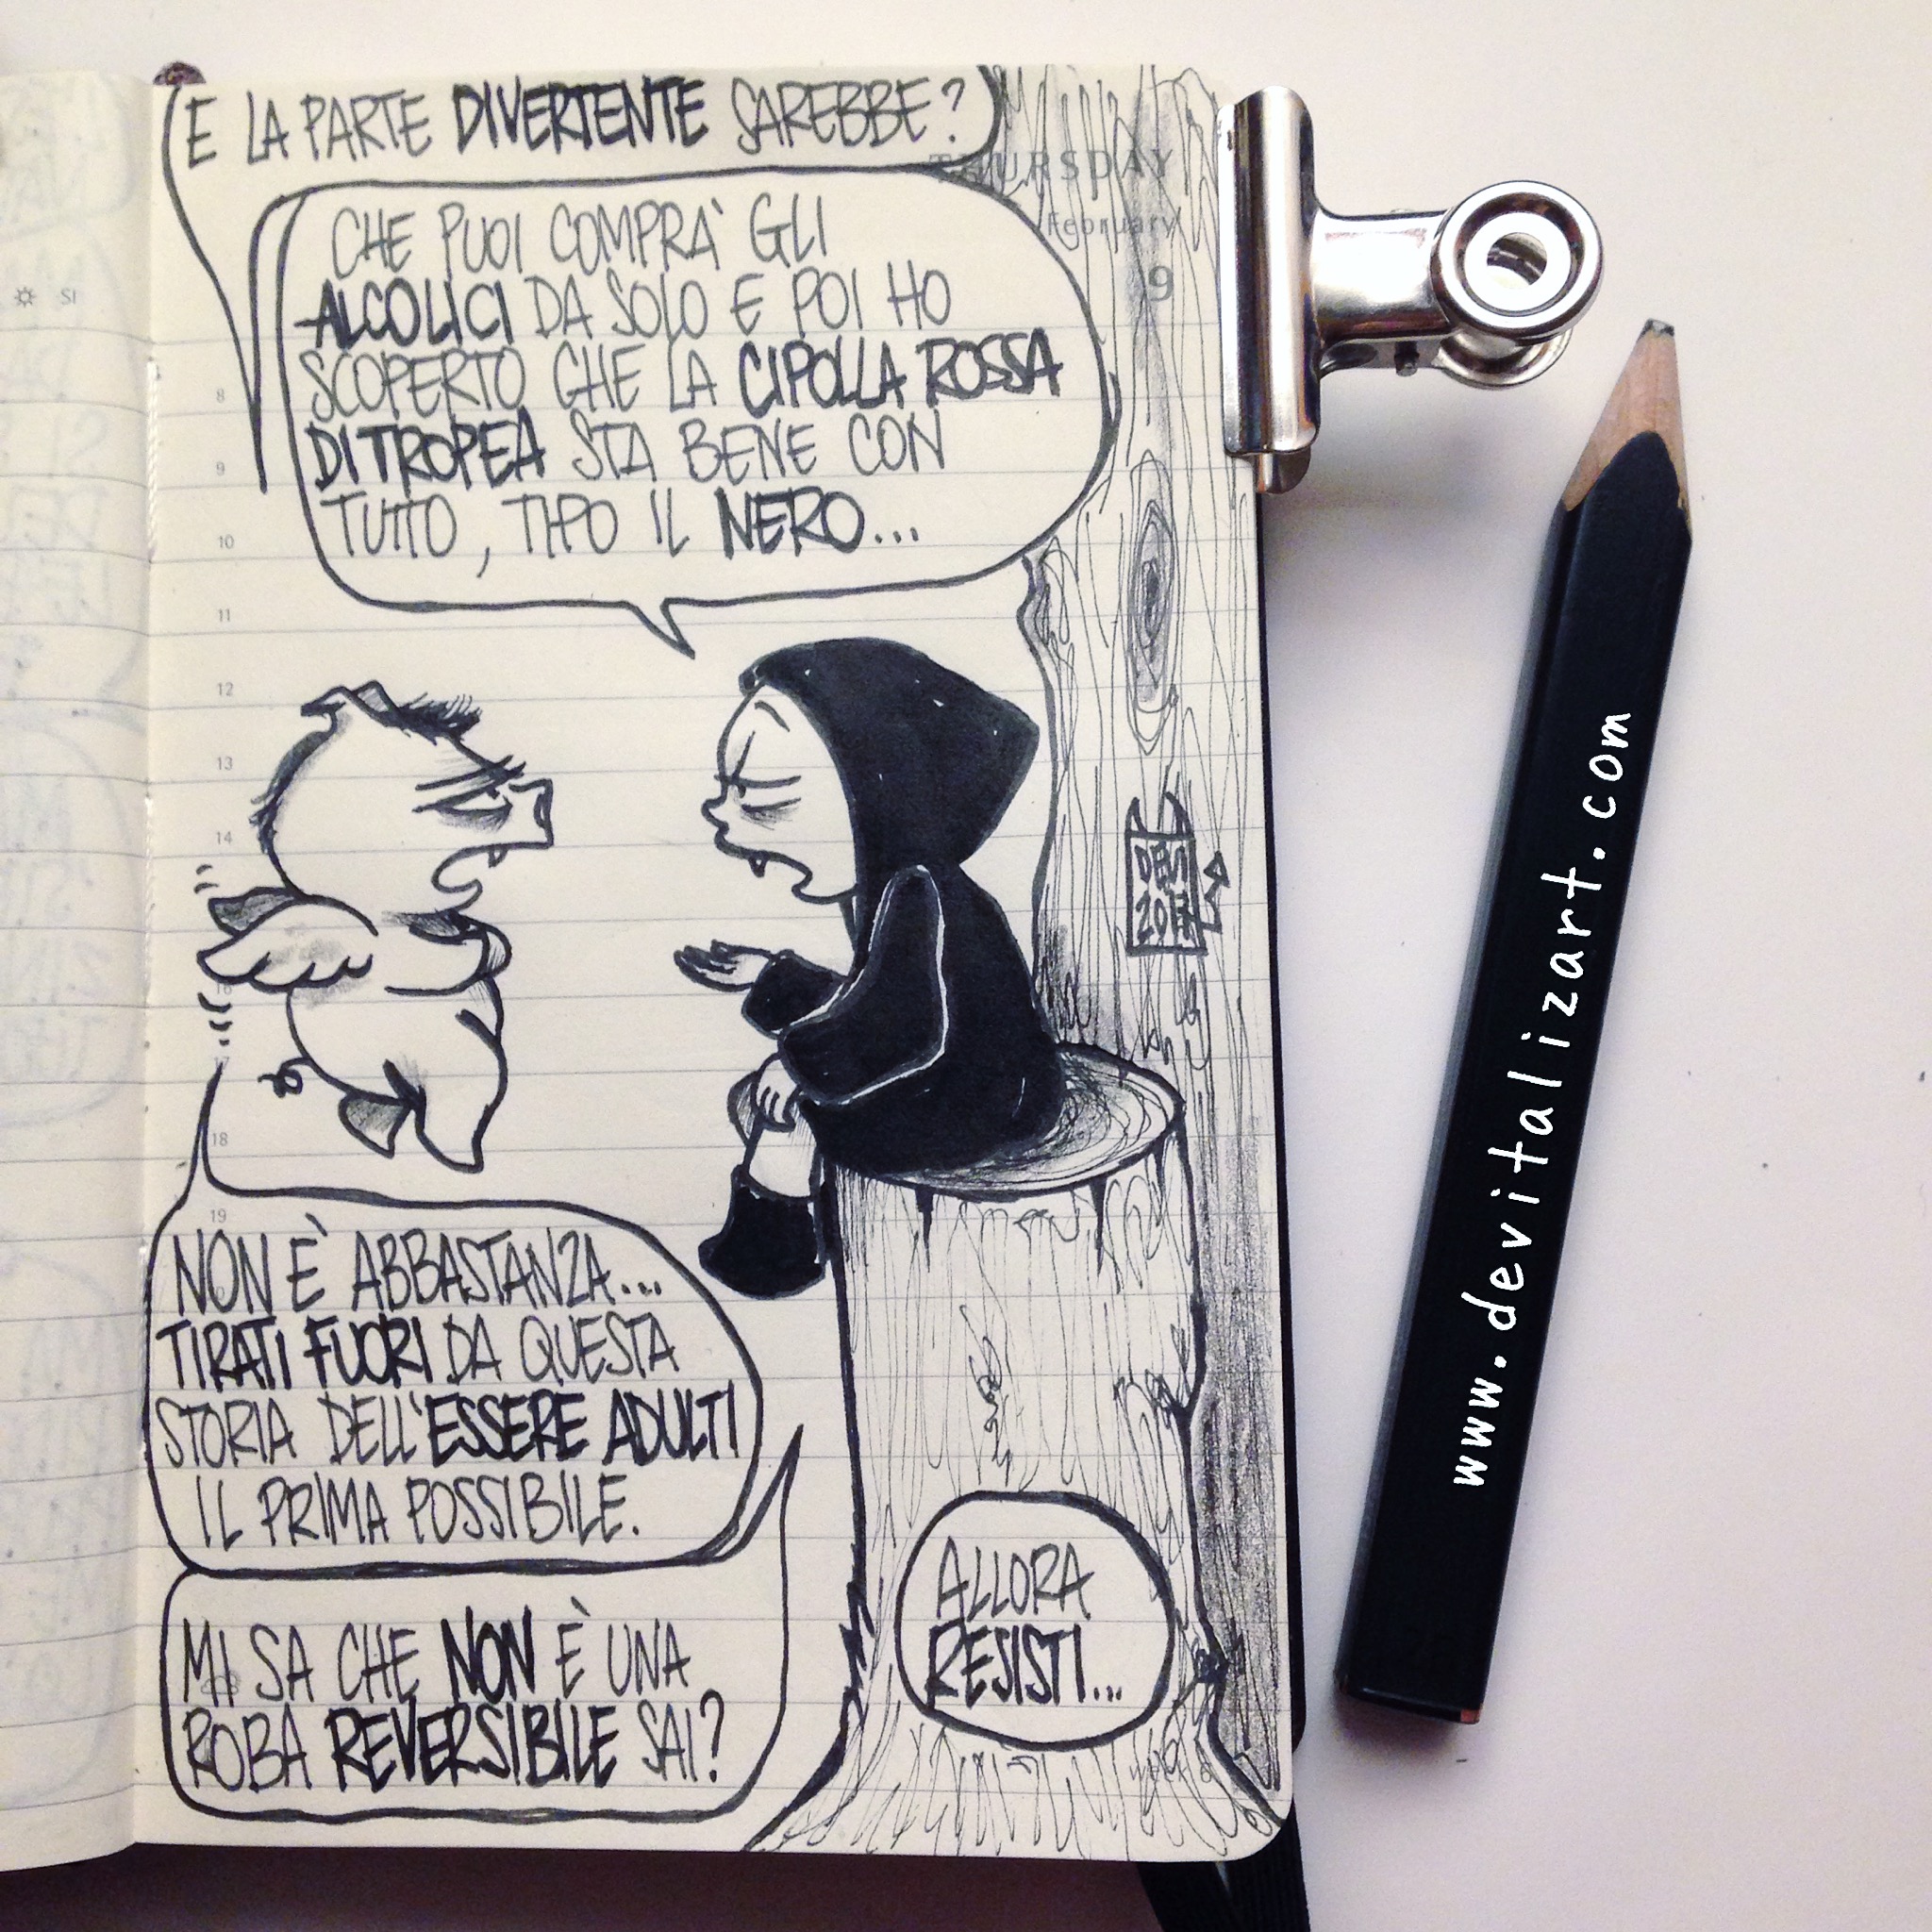 E LA PARTE DIVERTENTE SAREBBE?
THURSDAY
February
9
CHE PUOI COMPRA' GLI
ALCOLICI DA SOLO E POI HO
SCOPERTO CHE LA CIPOLLA ROSSA
DI TROPEA STA BENE CON
TUTTO, TIPO IL NERO...
SI
8
9
10
11
12
13
14
16
17
18
19
DEVI
2017
NON È ABBASTANZA...
TIRATI FUORI DA QUESTA
STORIA DELL'ESSERE ADULTI
IL PRIMA POSSIBILE.
MI SA CHE NON È UNA
ROBA REVERSIBILE SAI?
ALLORA
RESISTI...
week 6
www.devitalizart.com